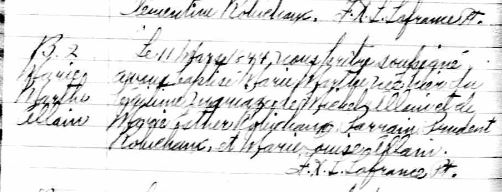 Clementine Robichaux. F.X.L. Laframce Pt.
B. 2
Marie
Marthe
Allain
Le 11 Mars 1844, nous prêtre soussigné
avons baptisé Marie Marthe née hier du
légitime mariage de Michel Allain et de
Marie Esther Robichaux. Parrain, Prudent
Robichaux, et Marie Louise Allain.
F.X.L. Laframce Pt.